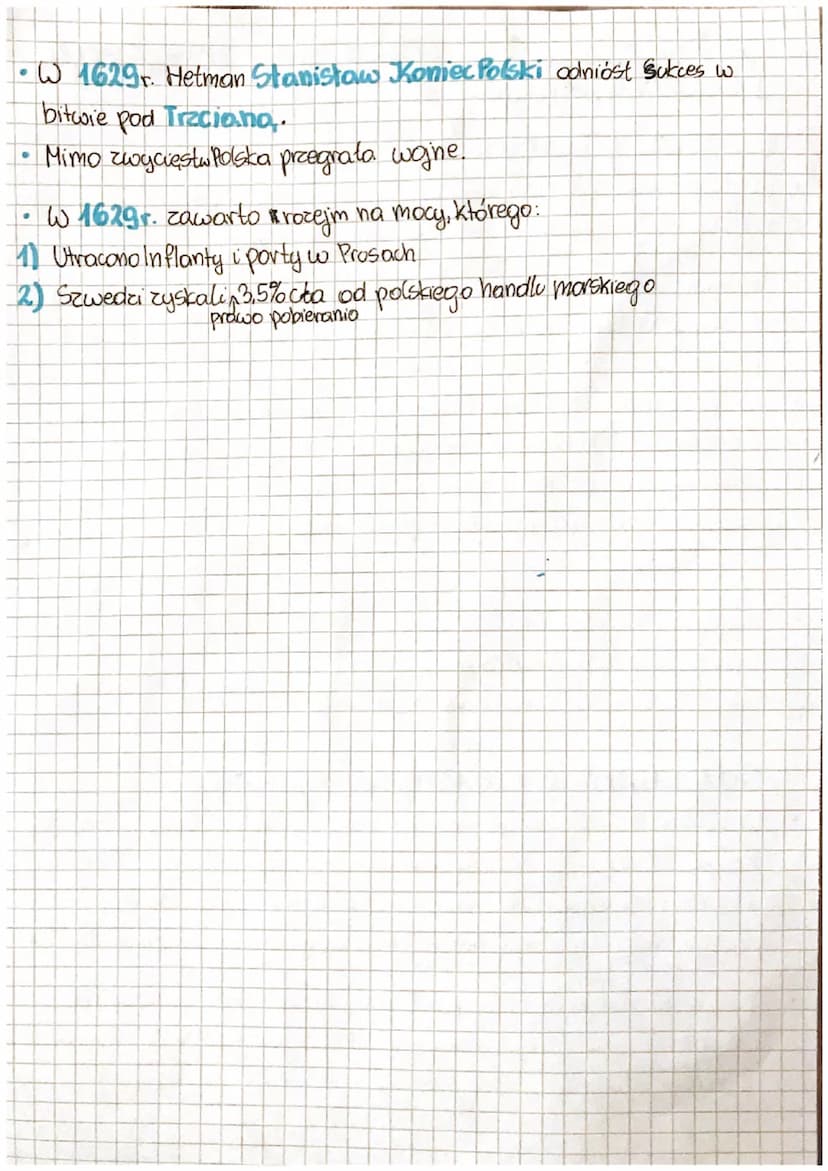 • W 1629r. Hetman Stanisław KoniecPolski odniósł sukces w
bitwie pod Trzcianą.
• Mimo zwycięstw Polska przegrała wojnę.
• W 1629r. zawarto rozejm na mocy, którego:
1) Utracono Inflanty i porty w Prusach
2) Szwedzi zyskali 3,5% cła od polskiego handlu morskiego
prawo pobierania